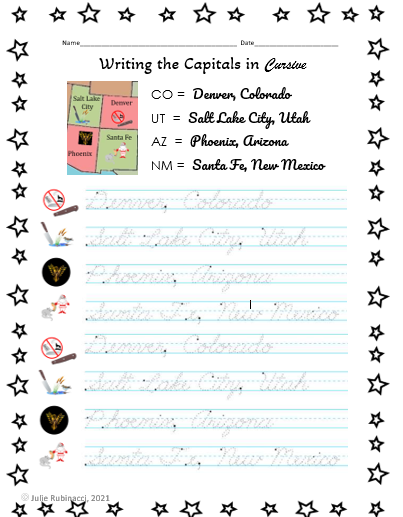 Name Date
Writing the Capitals in Cursive
Salt Lake City
Denver
Phoenix
Santa Fe
CO = Denver, Colorado
UT = Salt Lake City, Utah
AZ = Phoenix, Arizona
NM = Santa Fe, New Mexico
Denver, Colorado
Salt Lake City, Utah
Phoenix, Arizona
Santa Fe, New Mexico
Denver, Colorado
Salt Lake City, Utah
Phoenix, Arizona
Santa Fe, New Mexico
© Julie Rubinacci, 2021